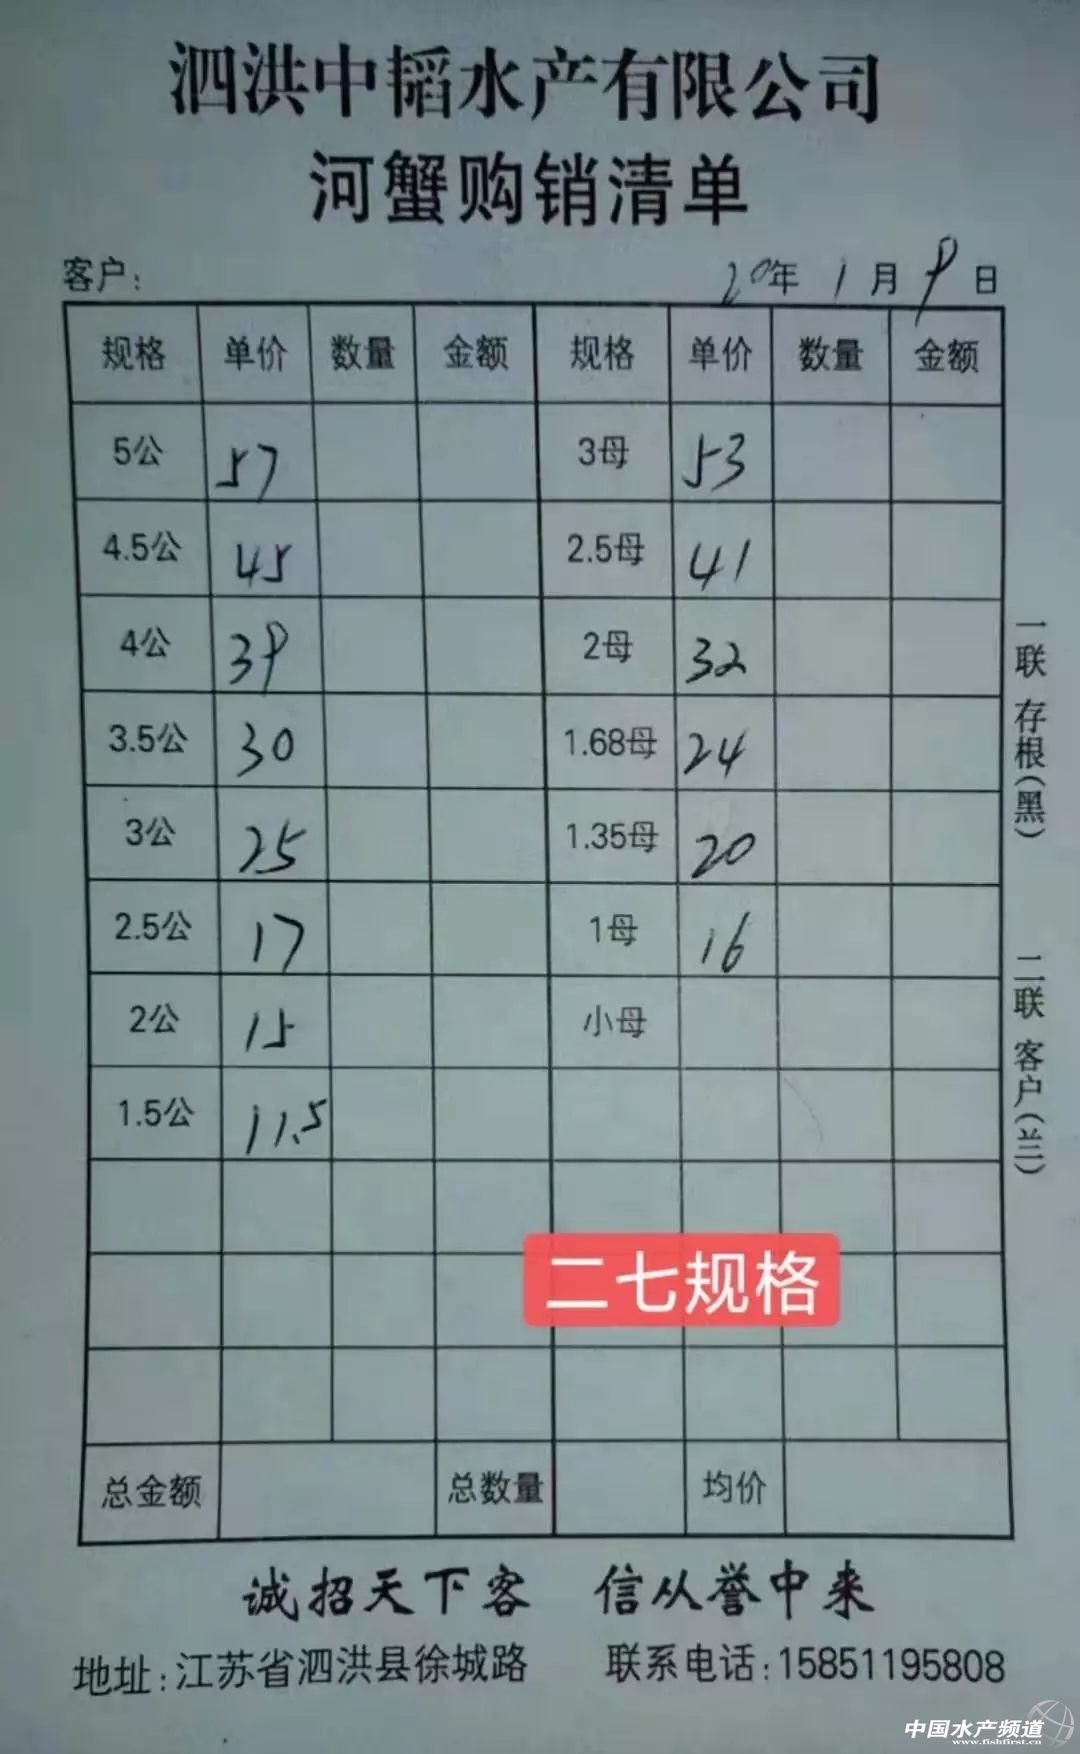 泗洪中韬水产有限公司
河蟹购销清单
客户: 20年 1月 9日
规格 单价 数量 金额 规格 单价 数量 金额
5公 57 3母 53
4.5公 45 2.5母 41
4公 39 2母 32
3.5公 30 1.68母 24
3公 25 1.35母 20
2.5公 17 1母 16
2公 15 小母
1.5公 11.5
二七规格
总金额 总数量 均价
一联 存根(黑) 二联 客户(兰)
诚招天下客 信从誉中来
地址:江苏省泗洪县徐城路 联系电话:15851195808
中国水产频道
www.fishfirst.cn